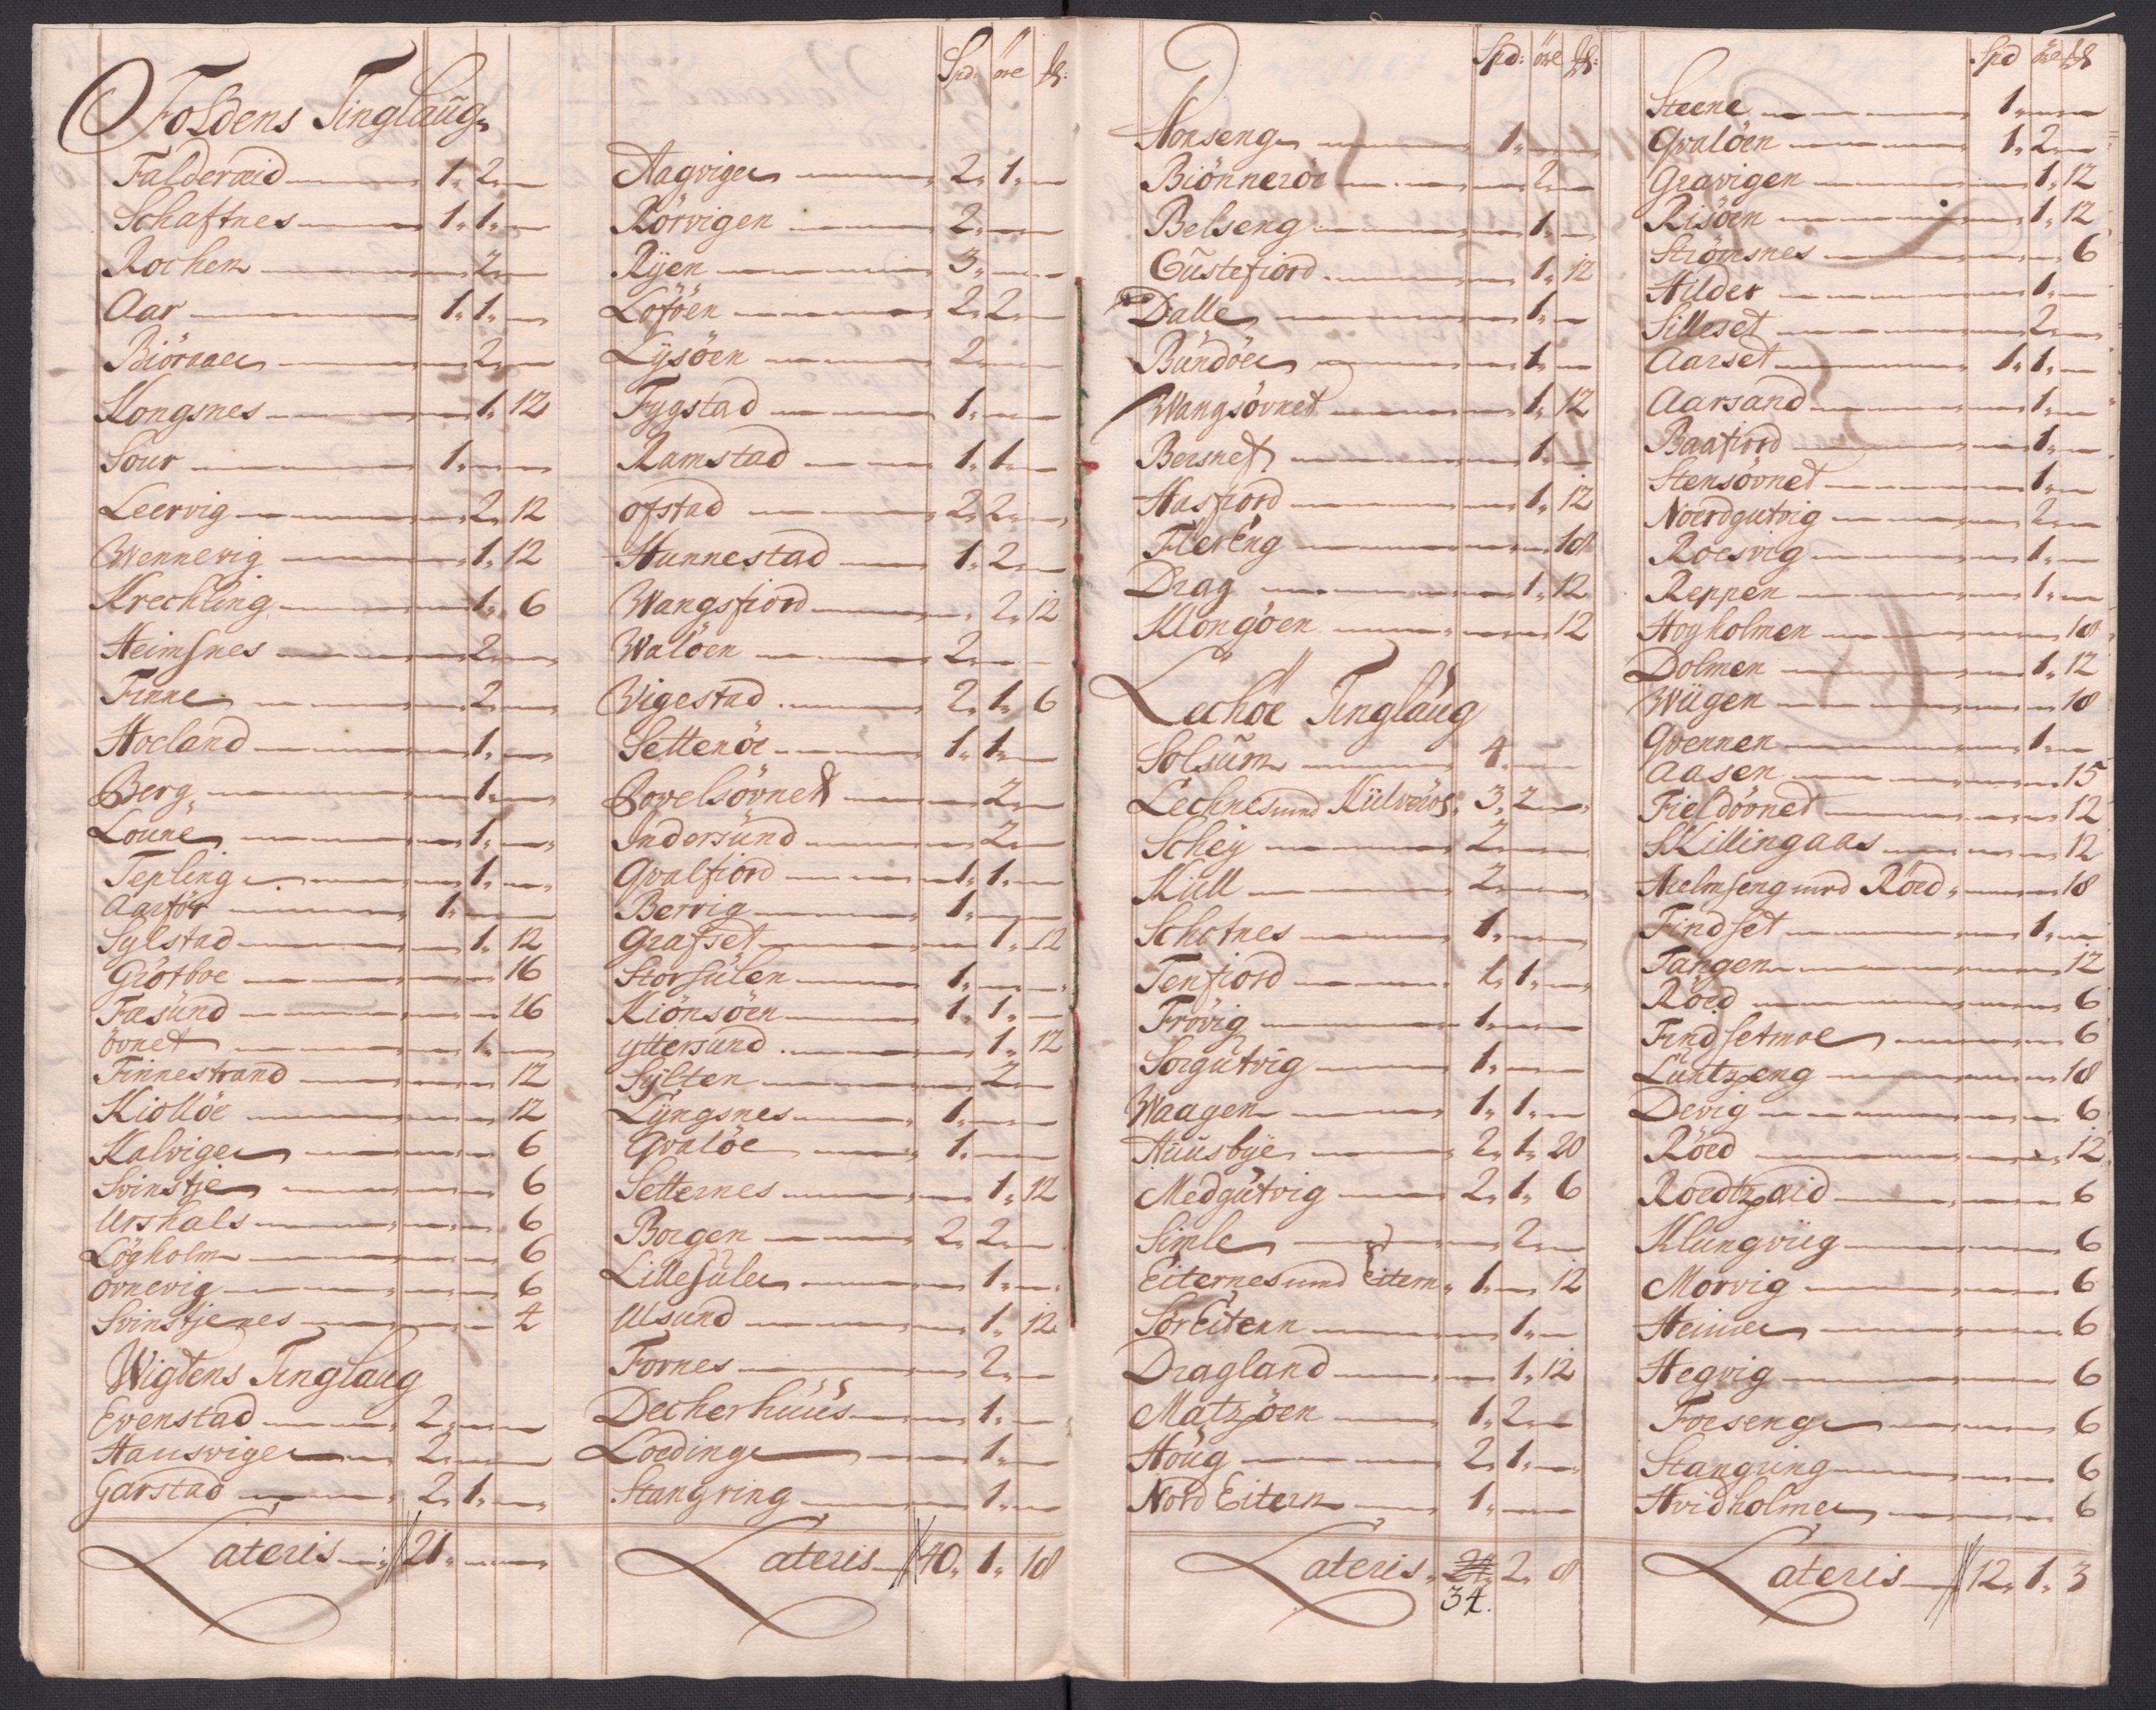 Foldens Tinglaug
Falderæid 1. 2.
Schaftnes 1. 1.
Rochen 2.
Aar 1. 1.
Biöraaen 2.
Kongsnes 1. 12
Sour 1.
Leervig 2. 12
Wennevig 1. 12
Krechling 1. 6
Heimsnes 2.
Finne 2.
Hoeland 1.
Berg 1.
Loune 1.
Tepling 1.
Aarför 1.
Sylstad 1. 12
Grötboe 16
Fasund 16
övnet 1.
Finnestrand 12
Kiollöe 12
Kalvigen 6
Svinstje 6
Urshals 6
Lögholm 6
ovnevig 6
Svinstjenes 4
Wigtens Tinglaug
Evenstad 2.
Hansvigen 2.
Garstad 2. 1.
Lateris 21.
Spd: öre
Aagvigen 2. 1.
Rörvigen 2.
Ryen 3.
Löföen 2. 2.
Lysöen 2.
Fygstad 1.
Ramstad 1. 1.
ofstad 2. 2.
Hunnestad 1. 2.
Wangsfiord 2. 12
Walöen 2.
Wigestad 2. 1. 6
Settenöe 1. 1.
Bovelsövnet 2.
Indersund 2.
Qvalfiord 1. 1.
Bervig 1.
Grafset 1. 12
Storsulen 1.
Kiönsöen 1. 1.
yttersund 1. 12
Sylten 2.
Lyngsnes 1.
Qvalöe 1.
Setternes 1. 12
Borgen 2. 2.
Lillesulen 1.
Ulsund 1. 12
Fornes 2.
Decherhuus 1.
Loeding 1.
Stangring 1.
Lateris 40. 1. 18
Spd: öre
Horseng 1.
Biönneröe 2.
Belseng 1.
Gustefiord 1. 12
Dalle 1.
Bundöen 1.
Wangsövnet 1. 12
Bersnet 1.
Hasfiord 1. 12
Flereng 18
Drag 1. 12
Klongöen 12
Lechöe Tinglaug
Solsum 4.
Lechnes und 3. 2.
Schey 2.
Kiell 2.
Schotnes 1.
Tenfiord 1. 1.
Frövig 1.
Sorgutvig 1.
Waagen 1. 1.
Huusbye 2. 1. 20
Medgutvig 2. 1. 6
Simle 2.
Eiternes und Eitern 1. 12
Sör Eitern 1.
Dragland 1. 12
Matzöen 1. 2.
Houg 2. 1.
Nord Eitern 1.
Lateris 2. 8
34.
Spd öre
Steene 1.
Qvalöen 1. 2.
Gravigen 1. 12
Risöen 1. 12
Strömsnes 6
Hilder 1.
Silleset 2.
Aarset 1. 1.
Aarsand 1.
Baafiord 1.
Stensövnet 1.
Noerdgutvig 2.
Roesvig 1.
Reppen 1.
Hogholmen 18
Dolmen 1. 12
Wiigen 18
Qvennen 1.
Aasen 15
Fieldövnet 12
Skillingaas 12
Hielmseng und Röed 18
Findset 1.
Tangen 12
Röed 6
Findsetmoe 6
Luntzeng 18
Devig 6
Röed 12
Roedtzaid 6
Klungviig 6
Morvig 6
Heimen 6
Hegvig 6
Foeseng 6
Stangring 6
Hvidholmen 6
Lateris 12. 1. 3